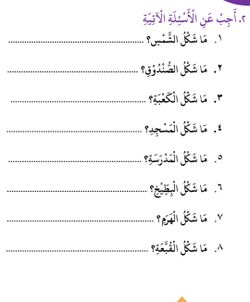 ٢. أَجِبْ عَنِ الْأَسْئِلَةِ الْآتِيَةِ
١. مَا شَكْلُ الشَّمْسِ؟ ........................................
٢. مَا شَكْلُ الصُّنْدُوْقِ؟ ........................................
٣. مَا شَكْلُ الْكَعْبَةِ؟ ........................................
٤. مَا شَكْلُ الْمَسْجِدِ؟ ........................................
٥. مَا شَكْلُ الْمَدْرَسَةِ؟ ........................................
٦. مَا شَكْلُ الْبِطِّيْخِ؟ ........................................
٧. مَا شَكْلُ الْهَرَمِ؟ ........................................
٨. مَا شَكْلُ الْقُبَّعَةِ؟ ........................................